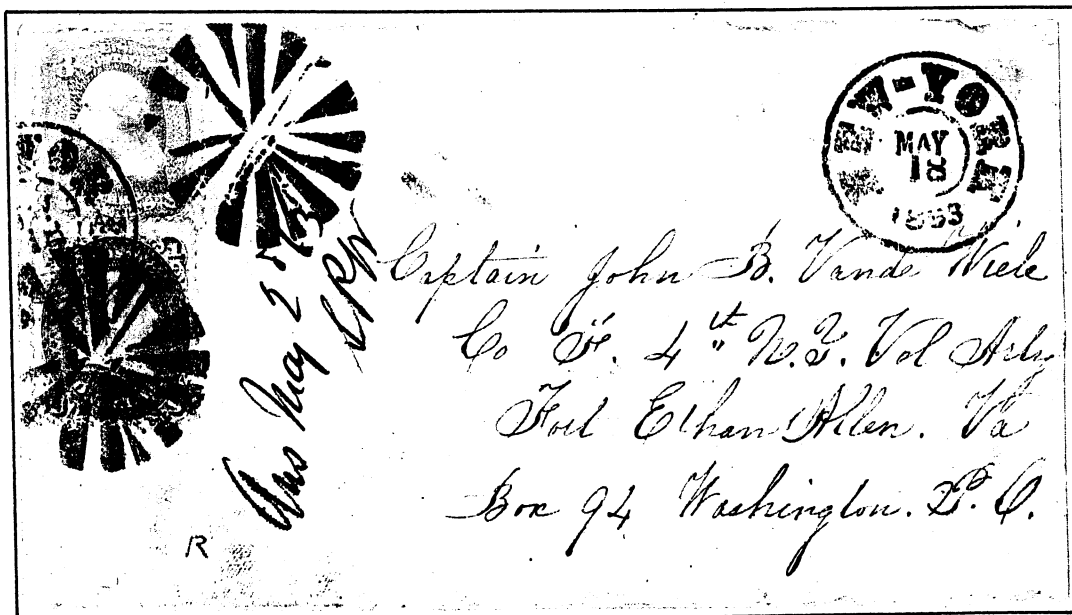 NEW-YORK
MAY
18
1863
Captain John B. Vande Wiele
Co F. 4th N.Y. Vol Arty
Fort Ethan Allen. Va
Box 94 Washington. D. C.
Ans May 25
R